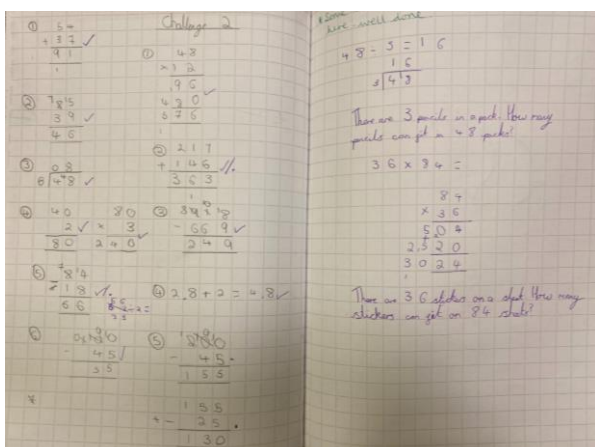 ① 54
+ 37 ✓
91
1
② 85
39 ✓
46
③ 08
6 48 ✓
④ 40
2 ✓
80
80
× 3
240
⑤ 84
18
66
- 45
35
Challenge 2
① 48
× 12
96
480
576
1
② 217
+ 146
363
1
③
- 669 ✓
249
④ 2.8 + 2 = 4.8 ✓
⑤
- 45
155
155
- 25
130
some
here well done
48 ÷ 3 = 16
16
3 48
There are 3 pencils in a pack. How many
pencils can fit in 48 packs?
36 × 84 =
84
× 36
504
2,520
3024
1
There are 36 stickers on a sheet. How many
stickers can fit on 84 sheets?